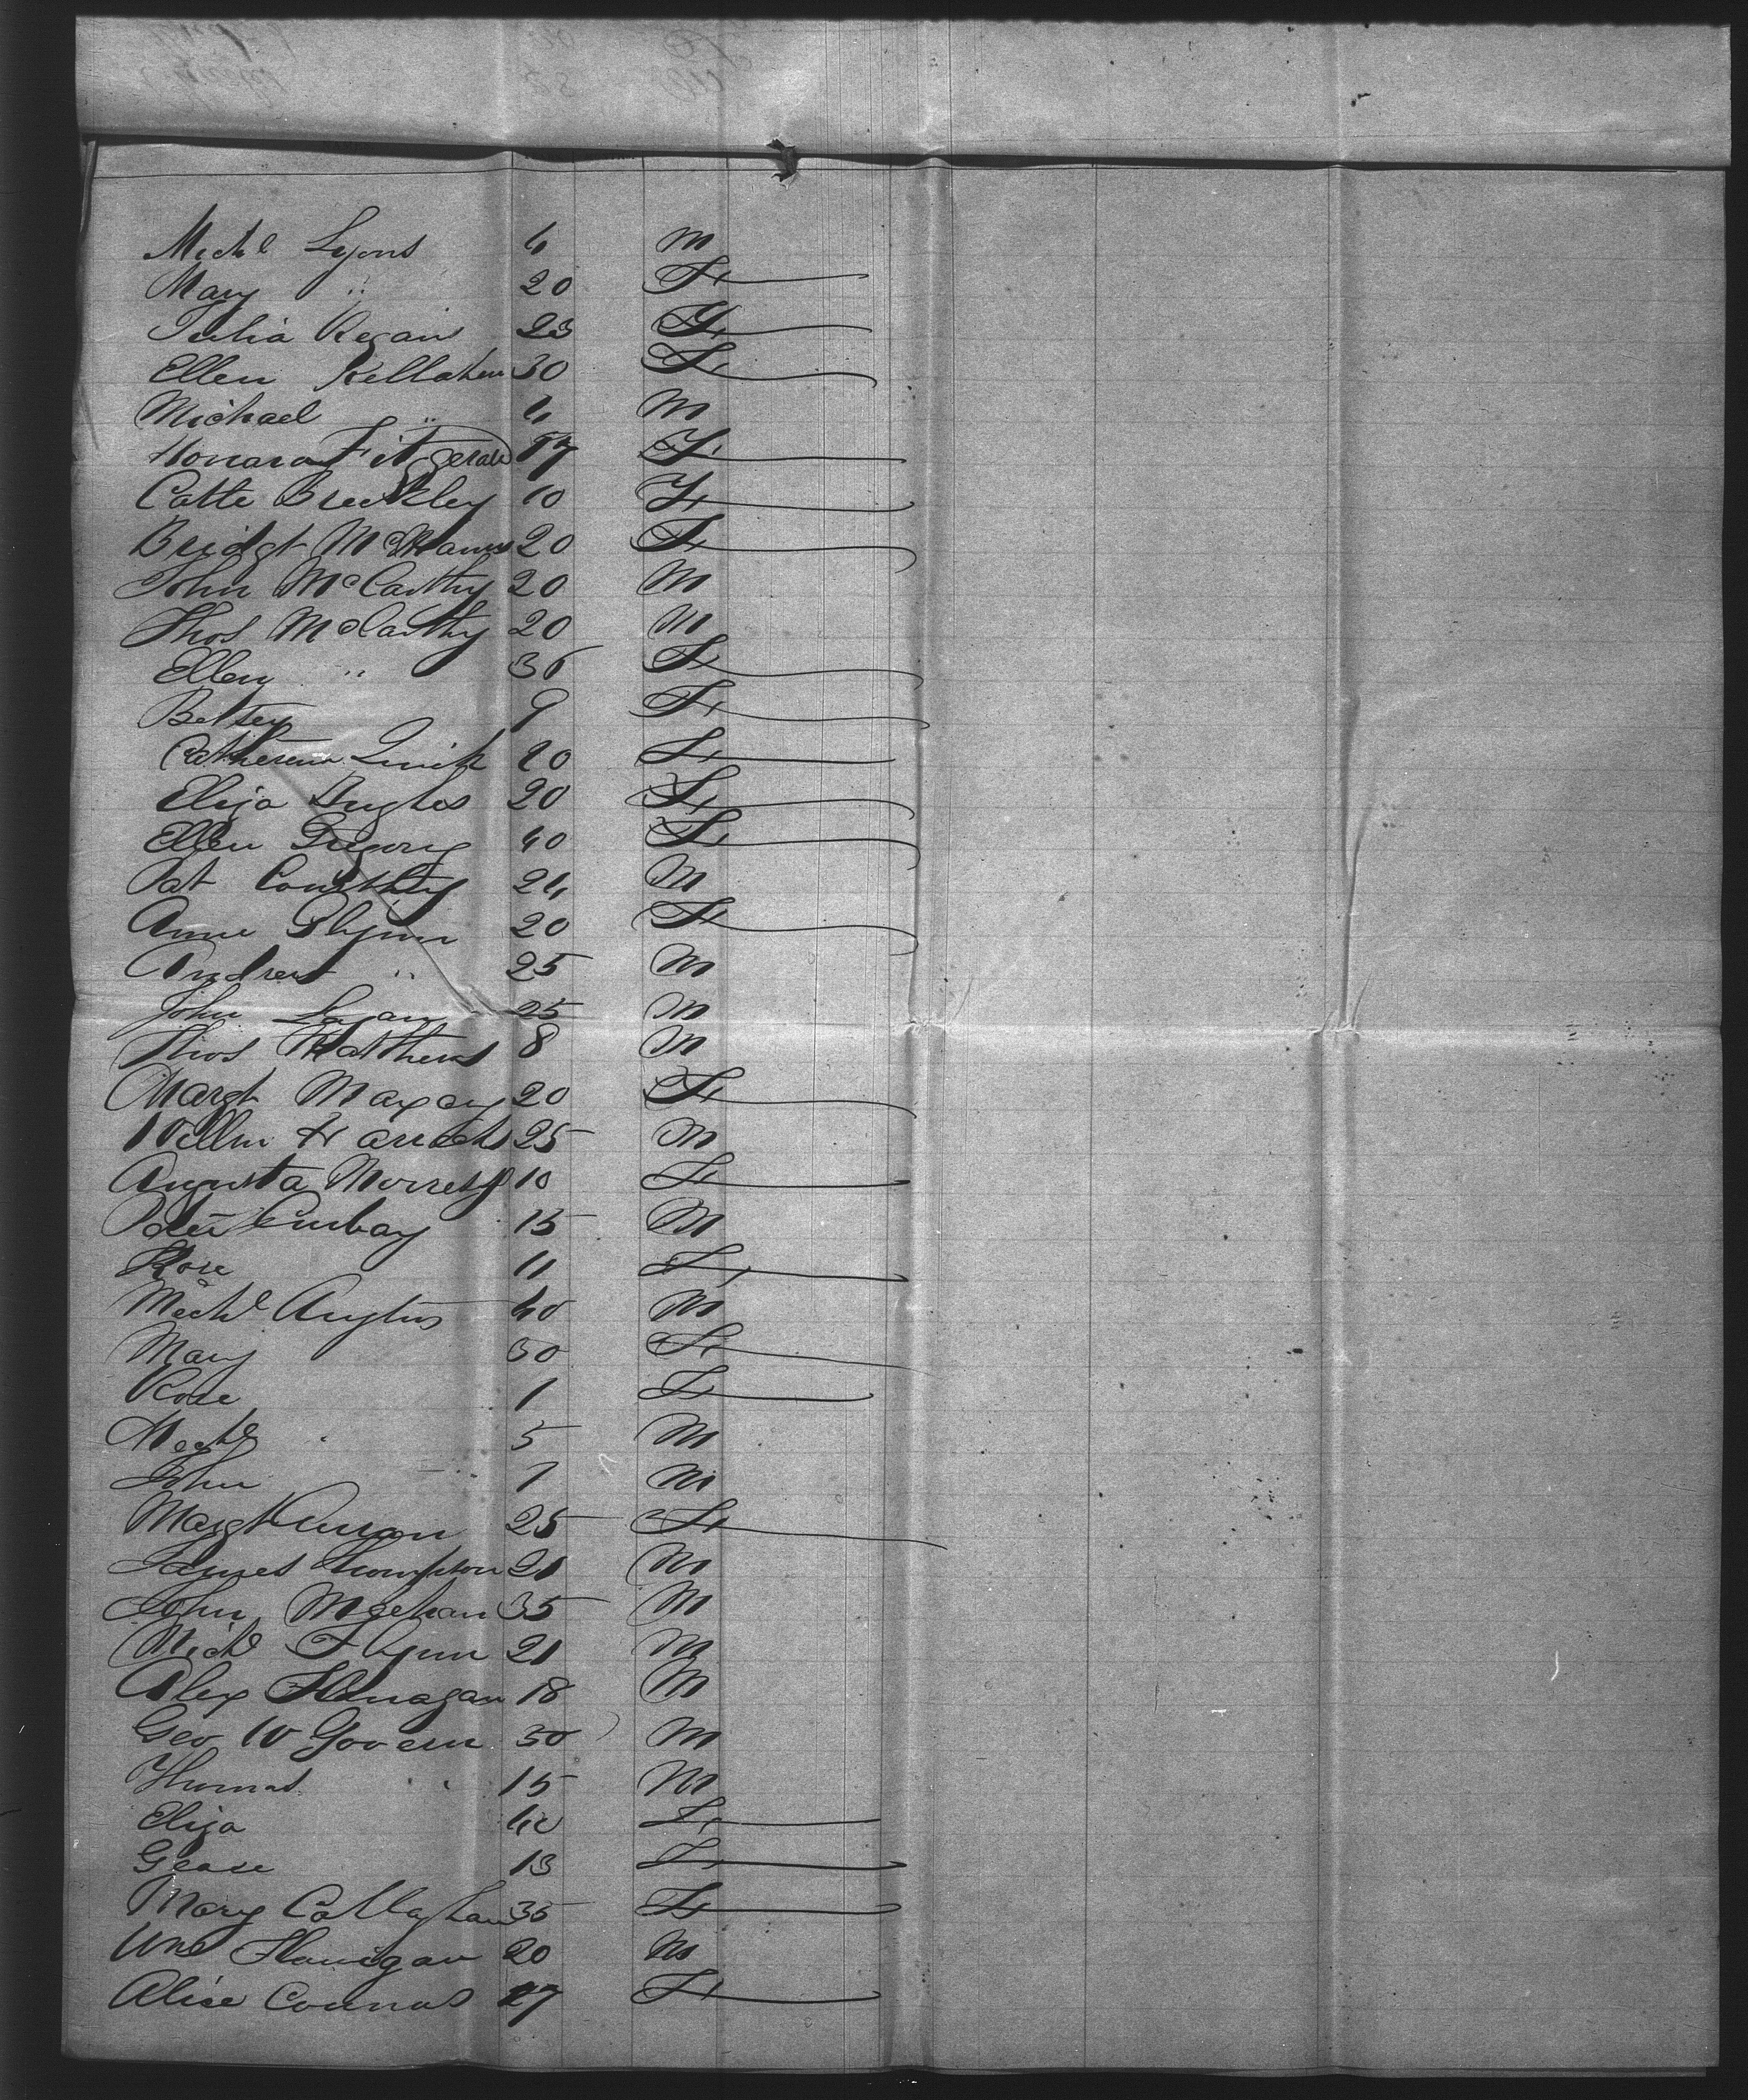 Michl Lyons 4 M
Mary " 20 F
Julia Regan 23 F
Ellen Kellahen 30 F
Michael " 4 M
Honara Fitzgerald 17 F
Catte Breckley 10 F
Bridgt McManus 20 F
John McCarthy 20 M
Thos McCarthy 20 M
Ellen " 36 F
Betsey 9 F
Catherine Quirk 20 F
Eliza Hughes 20 F
Ellen Gregory 40 F
Pat 24 M
Anne Glynn 20 F
Andrew " 25 M
John Logan 25 M
Thos Matthews 8 M
Margt 20 F
Willm 25 M
Augusta 10 F
Peter 15 M
Rose 11 F
Michl 40 M
Mary 30 F
Rose 1 F
Michl 5 M
John 1 M
Margt Curran 25 F
James Thompson 21 M
John Meehan 35 M
Michl Flynn 21 M
Alex Flanagan 18 M
Geo W Govern 50 M
Thomas " 15 M
Eliza 40 F
Grace 13 F
Mary Callaghan 35 F
Wm Flanigan 20 M
Alice Connors 27 F